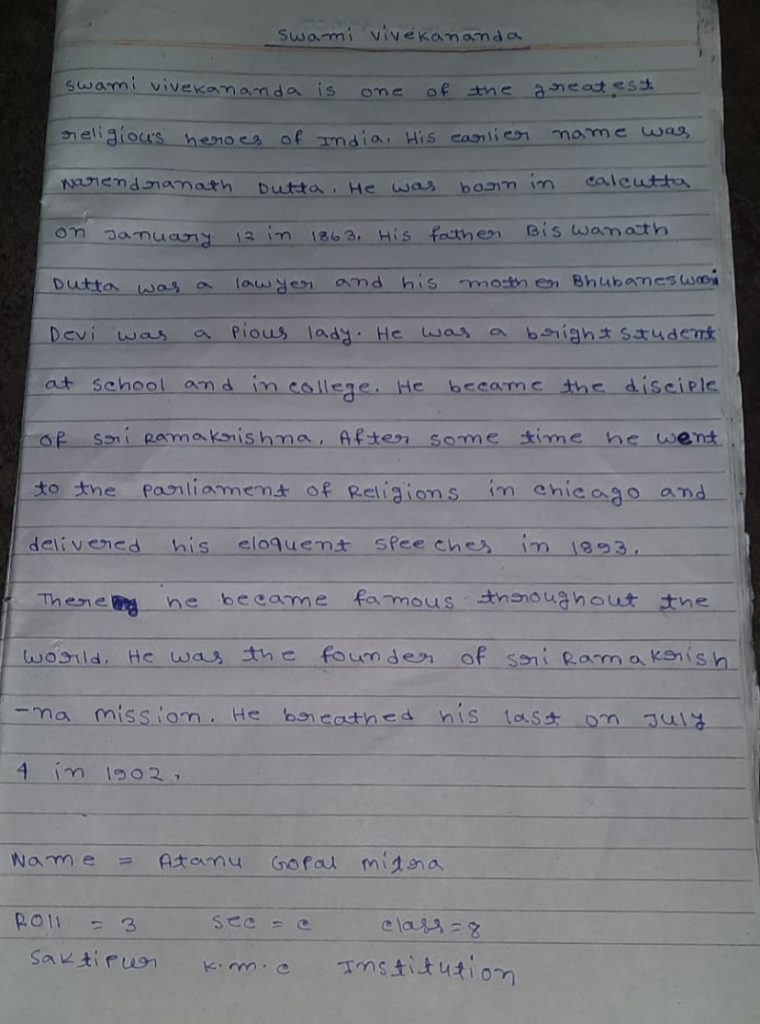 Swami Vivekananda
Swami Vivekananda is one of the greatest
religious heroes of India. His earlier name was
Narendranath Dutta. He was born in Calcutta
on January 12 in 1863. His father Biswanath
Dutta was a lawyer and his mother Bhubaneswari
Devi was a Pious lady. He was a bright student
at School and in college. He became the disciple
of Sri Ramakrishna. After some time he went
to the Parliament of Religions in Chicago and
delivered his eloquent speeches in 1893.
There he became famous throughout the
world. He was the founder of Sri Ramakrish
-na mission. He breathed his last on July
4 in 1902,
Name = Atanu Gopal Mitra
Roll = 3 Sec = C Class = 8
Saktipur K.M.C Institution